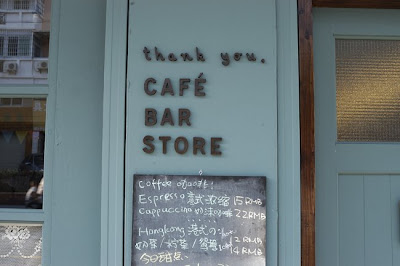 thank you.
CAFÉ
BAR
STORE
Coffee
Espresso 意式浓缩 15 RMB
Cappuccino 22 RMB
Hongkong 港式
奶茶 / 12 RMB
14 RMB
今日甜点